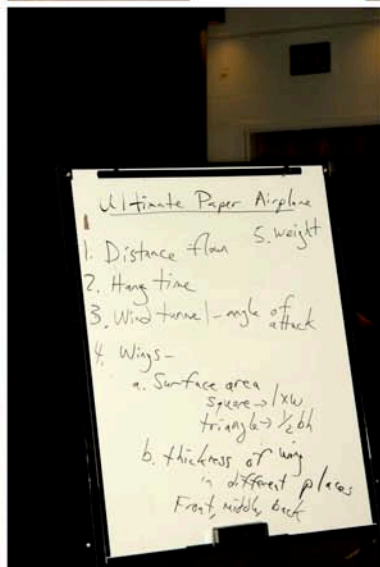 Ultimate Paper Airplane
1. Distance flown
5. weight
2. Hang time
3. Wind tunnel - angle of
attack
4. Wings -
a. Surface area
square → l x w
triangle → 1/2 bh
b. thickness of wing
in different places
Front, middle, back